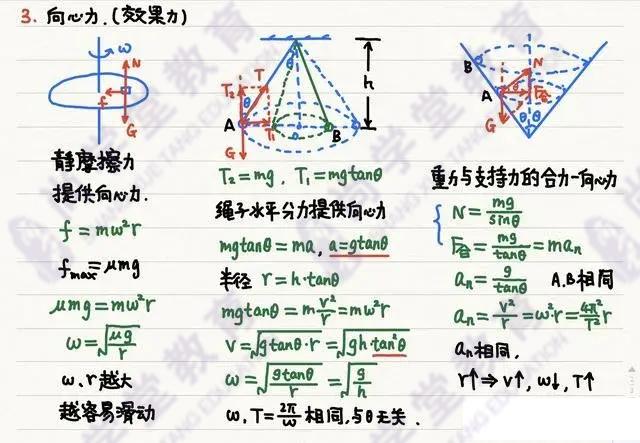 3. 向心力.(效果力)
ω
N
f
G
静摩擦力
提供向心力.
f = mω²r
fmax = μmg
μmg = mω²r
ω = √(μg/r)
ω、r越大
越容易滑动
θ
h
T₂
T
θ
A
T₁
B
G
T₂ = mg, T₁ = mgtanθ
绳子水平分力提供向心力
mgtanθ = ma, a = gtanθ
半径 r = h·tanθ
mgtanθ = m v²/r = mω²r
v = √(gtanθ·r) = √(gh·tan²θ)
ω = √(gtanθ/r) = √(g/h)
ω, T = 2π/ω 相同,与θ无关.
B
N
A
θ
F合
G
θ
θ
重力与支持力的合力—向心力
N = mg/sinθ
F合 = mg/tanθ = maₙ
aₙ = g/tanθ A、B相同
aₙ = v²/r = ω²r = 4π²/T² r
aₙ相同.
r↑ ⇒ v↑, ω↓, T↑